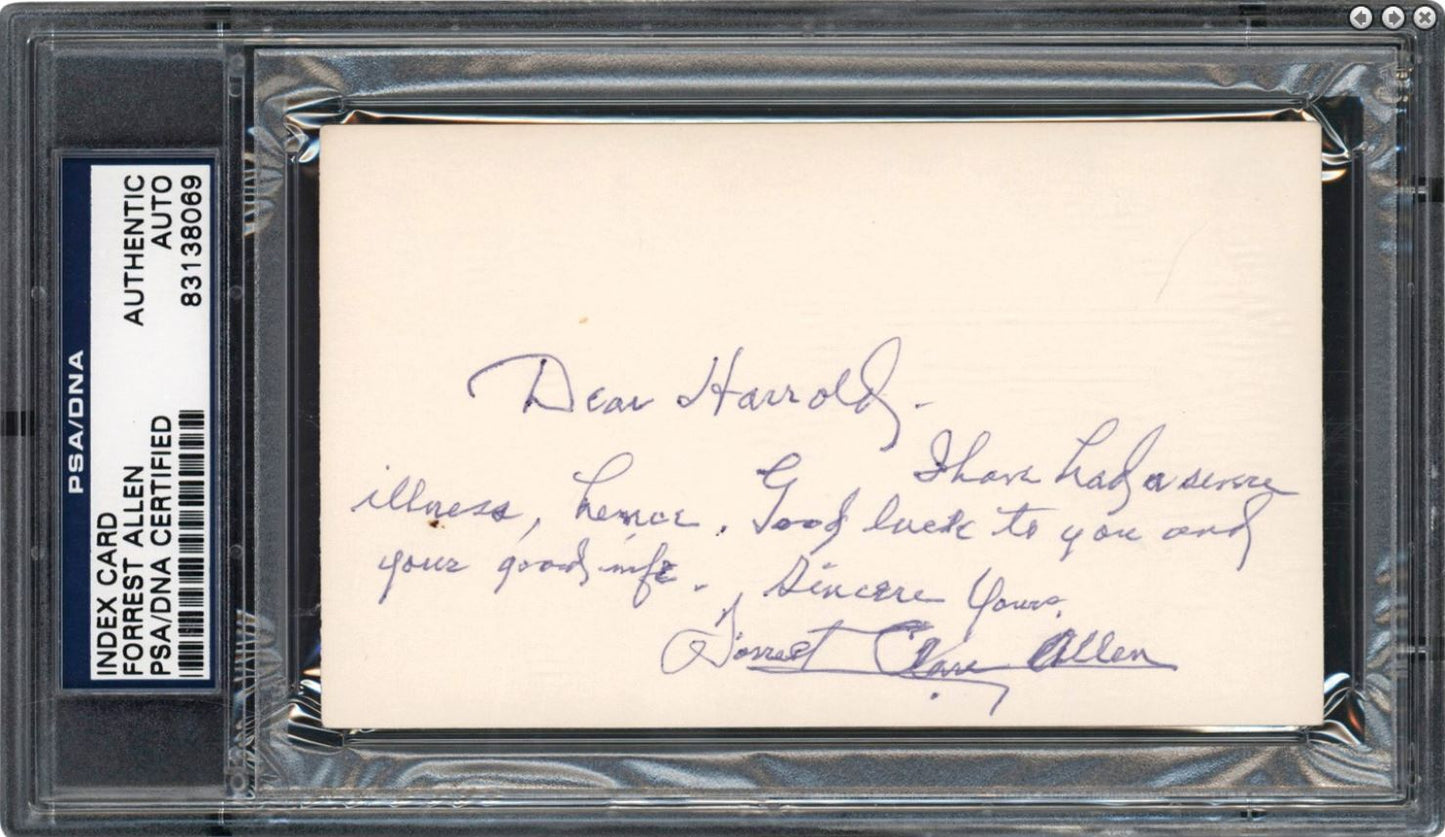 PSA/DNA
INDEX CARD
FORREST ALLEN
PSA/DNA CERTIFIED
AUTHENTIC
AUTO
83138069
Dear Harrold,
I have had a severe
illness, hence. Good luck to you and
your good wife. Sincere Yours,
Forrest Clare Allen